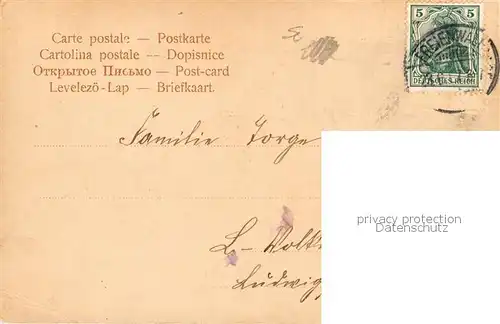 Carte postale — Postkarte
Cartolina postale — Dopisnice
Открытое Письмо — Post-card
Levelező-Lap — Briefkaart.
5 5
FREIENWA
DEUTSCHES REICH
Familie Jorge
privacy protection
Datenschutz
L-Volk
Ludwig